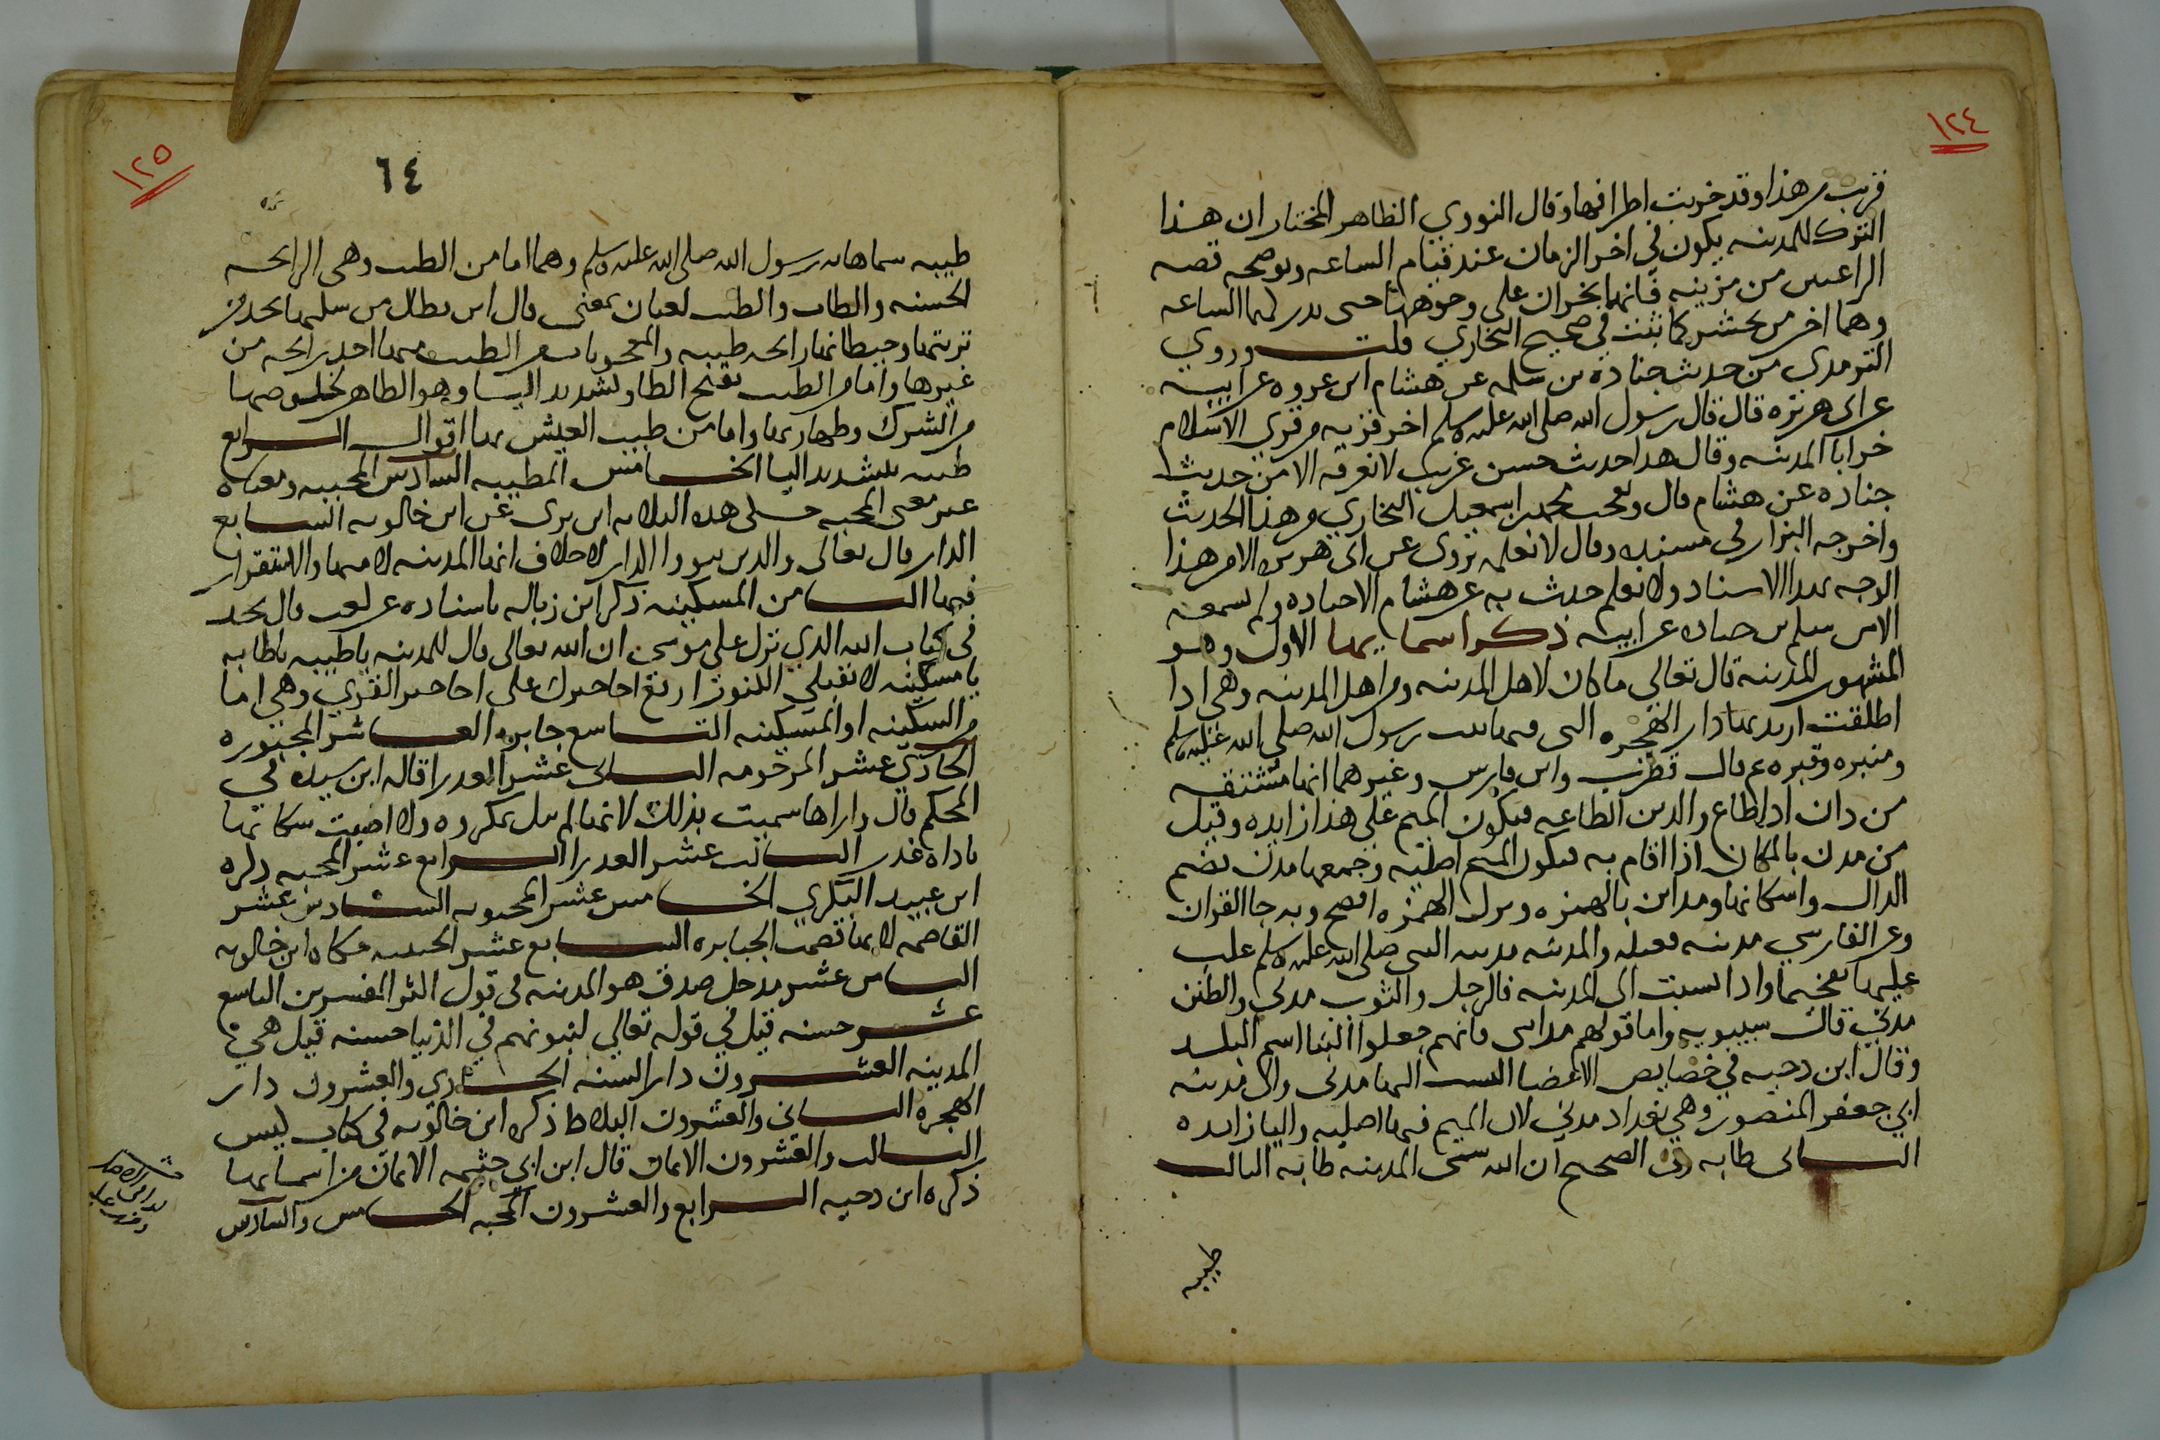 ١٢٤
قريب من هذا وقد خربت اطرافها وقال النووي الظاهر المختار ان هذا
الترك للمدينه يكون في اخر الزمان عند قيام الساعه وتوضحه قصه
الراعيين من مزينه فانهما يخران على وجوههما حتى تدركهما الساعه
وهما اخر من يحشر كما ثبت في صحيح البخاري قلت وروي
الترمدى من حديث جناده بن سلمه عن هشام ابن عروه عن ابيه
عن ابى هريره قال قال رسول الله صلى الله عليه وسلم اخر قريه من قري الاسلام
خرابا المدينه وقال هدا حديث حسن غريب لا نعرفه الا من حديث
جناده عن هشام قال وتعجب محمد بن اسمعيل البخاري من هذا الحديث
واخرجه البزار فى مسنده وقال لا نعلمه يروى عن ابى هريره الا من هذا
الوجه بهدا الاسناد ولا نعلم حدث به عن هشام الا جناده ولم يسمعه
الا من سلم بن جناده عن ابيه ذكر اسمايها الاول وهو
المشهور المدينه قال تعالى ما كان لاهل المدينه ومن اهل المدينه وهى ادا
اطلقت اريد بها دار الهجره التى فيها بيت رسول الله صلى الله عليه وسلم
ومنبره وقبره قال قطرب وابن فارس وغيرهما انها مشتقه
من دان ادا اطاع والدين الطاعه فتكون الميم على هذا زايده وقيل
من مدن بالمكان اذا اقام به فتكون الميم اصليه وجمعها مدن بضم
الدال واسكانها ومداين بالهمزه وترك الهمزه افصح وبه جا القران
وعن الفارسي مدينه فعيله والمدينه مدينه النبى صلى الله عليه وسلم غلب
عليها تفخيما وادا نسبت الى المدينه فالرجل والثوب مدني والطير
مديني قال سيبويه واما قولهم مداينى فانهم جعلوا البنا اسم البلد
وقال ابن دحيه في خصايص الاعضا النسب اليها مدنى والى مدينه
ابي جعفر المنصور وهي بغداد مديني لان الميم فيها اصليه واليا زايده
الثانى طابه وفى الصحيح ان الله سمى المدينه طابه الثالث
طيبه
١٢٥
٦٤
طيبه سماها به رسول الله صلى الله عليه وسلم وهما اما من الطيب وهى الرايحه
الحسنه والطاب والطيب لغتان بمعنى قال ابن بطال من سكنها يجد من
تربتها وحيطانها رايحه طيبه والمعجونات من الطيب فيها احد رايحه من
غيرها واما من الطيب بفتح الطا وتشديد اليا وهو الطاهر لخلوصها
من الشرك وطهارتها واما من طيب العيش بها اقوال الرابع
طيبه بتشديد اليا الخامس المطيبه السادس المحببه ومعناه
غير معنى المحبه حكى هده الثلاثه ابن برى عن ابن خالويه السابع
الدار قال تعالى والدين تبووا الدار لا خلاف انها المدينه لامنها والاستقرار
فيها الثامن المسكينه ذكر ابن زباله باسناده عن كعب قال نجد
فى كتاب الله الدي نزل على موسى ان الله تعالى قال للمدينه يا طيبه يا طابه
يا مسكينه لا تقبلي الكنوز ارفع اجاجيرك على اجاجير القري وهي اما
من السكينه او المسكينه التاسع جابره العاشر المجبوره
الحادي عشر المرحومه الثانى عشر العدرا قاله ابن سيده في
المحكم قال واراها سميت بذلك لانها لم تنل بمكروه ولا اصيبت سكانها
باداه غدر الثالث عشر العدرا الرابع عشر المحبه ذكره
ابن عبيد البكري الخامس عشر المحبوبه السادس عشر
القاصمه لانها قصمت الجبابره السابع عشر الحبيبه حكاه ابن خالويه
الثامن عشر مدخل صدق هو المدينه فى قول اكثر المفسرين التاسع
عشر حسنه قيل في قوله تعالي لنبونهم في الدنيا حسنه قيل هي
المدينه العشرون دار السنه الحادي والعشرون دار
الهجره الثانى والعشرون البلاط ذكره ابن خالويه فى كتاب ليس
الثالث والعشرون الايمان قال ابن ابي خثيمه الايمان من اسمايها
ذكره ابن دحيه الرابع والعشرون المحبه الخامس والسادس